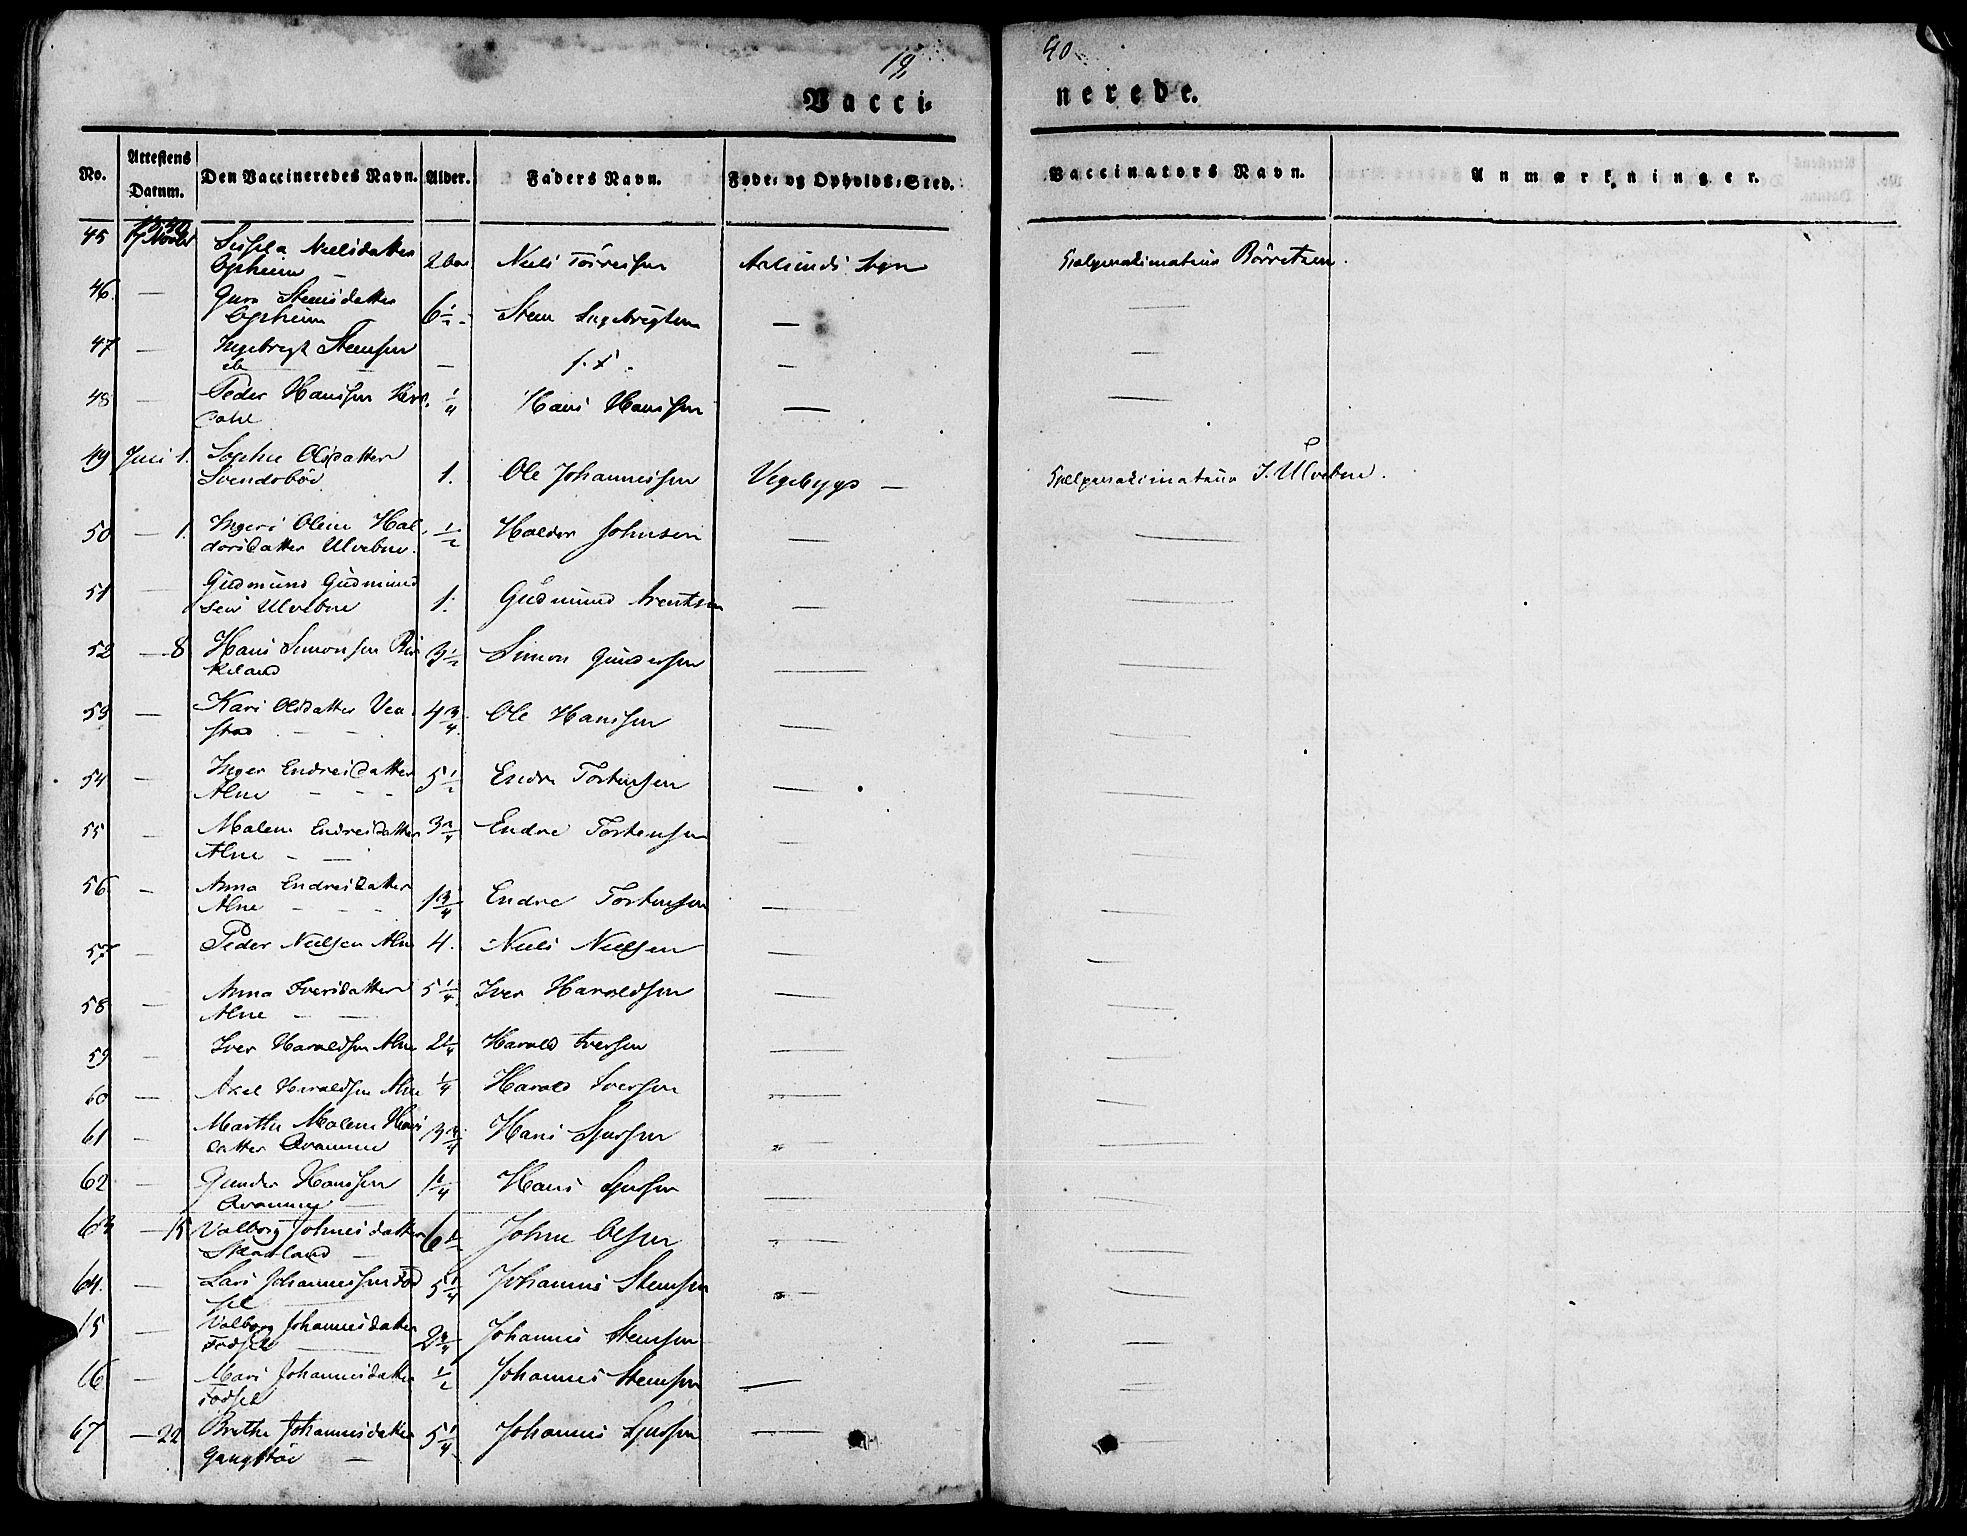 19, 40.
Vacci- nerede.
No. Attestens Datum. Den Vaccineredes Navn. Alder. Faders Navn. Føde- og Opholds-Sted. Vaccinators Navn. Anmærkninger.
45 Nielsdatter
Opheim Niels Sogn Hjelpevaccinateur Börretsen.
46. — Guro Steensdatter
Opheim 6 1/2 Steen Ingebregtsen — —
47 — Ingebregt Steensen
— — —
48 — Peder Hanssen
1/4 Hans Hanssen — —
49 Juni 1. Sophie Olsdatter
Svendsböe 1. Ole Johannessen Vegebygd — Hjelpevaccinateur J. Ulvebne.
50 — 1. Ingeri Oline Hal-
dorsdatter Ulvebne. 1/2 Haldor Johnsen — —
51 — Gudmund Gudmund
sen Ulvebne 1. Gudmund Arentsen — —
52 — 8 Hans Simonsen Bir
keland 3 1/2 Simon Gundersen — —
53 — Kari Olsdatter Vea-
stad 4 3/4 Ole Hanssen — —
54 — Inger Endresdatter
Alne — — — 5 1/2 Endre Tostensen — —
55 — Malene Endresdatter
Alne — — 3 3/4 Endre Tostensen — —
56 — Anna Endresdatter
Alne — — — 1 3/4 Endre Tostensen — —
57 — Peder Nielsen Alne 4. Niels Nielsen — —
58 — Anna Iversdatter
Alne — — 5 1/4 Iver Haroldsen — —
59 — Iver Haroldsen Alne 2 1/4 Harold Iversen — —
60 — Axel Haroldsen Alne 1/4 Harold Iversen — —
61 — Marthe Malene Hans
datter 3 3/4 Hans — —
62 — Gunder Hanssen
1 1/4 Hans — —
63 — 15 Valborg Johnesdatter
Skaaland — 6 1/2 Johne Olsen — —
64. — Lars Johannessen Fod
sel 5 1/4 Johannes Steensen — —
15 — Valborg Johannesdatter
Fodsel 2 3/4 Johannes Steensen — —
16 — Mari Johannesdatter
Fodsel 1/2 Johannes Steensen — —
67 — 22 Berthe Johannesdatter
Gangstöe — 5 1/4 Johannes — —